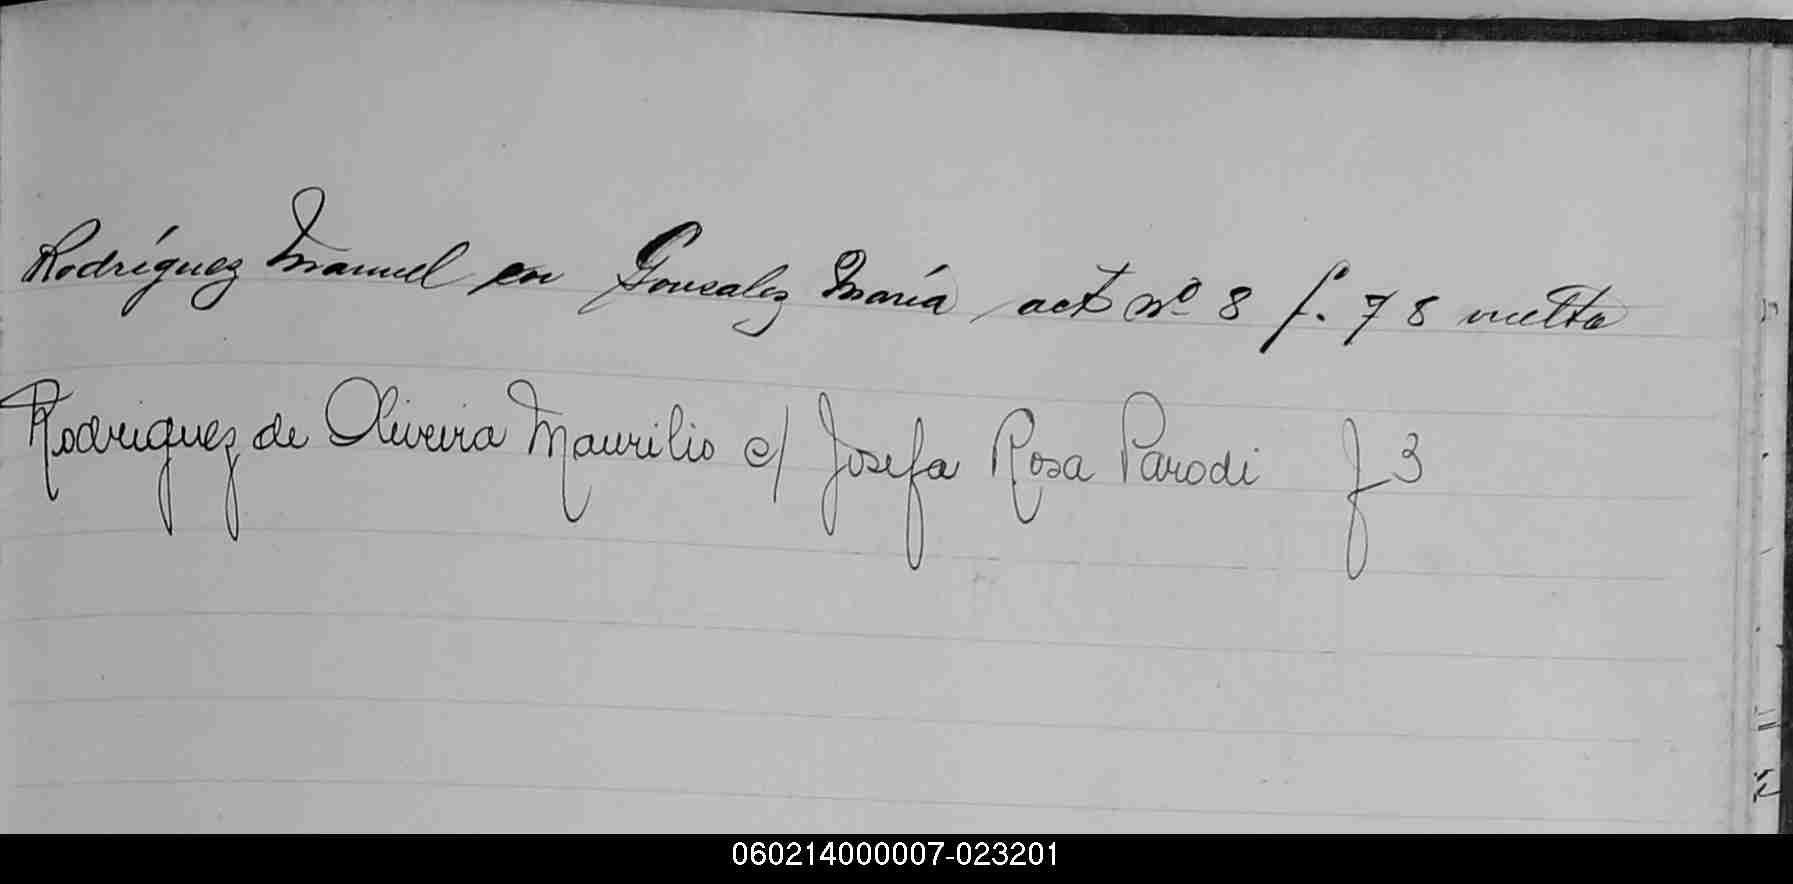 Rodríguez Manuel con Gonzalez María act nº 8 f. 78 vuelta
Rodriguez de Oliveira Maurilio c/ Josefa Rosa Parodi f 3
060214000007-023201